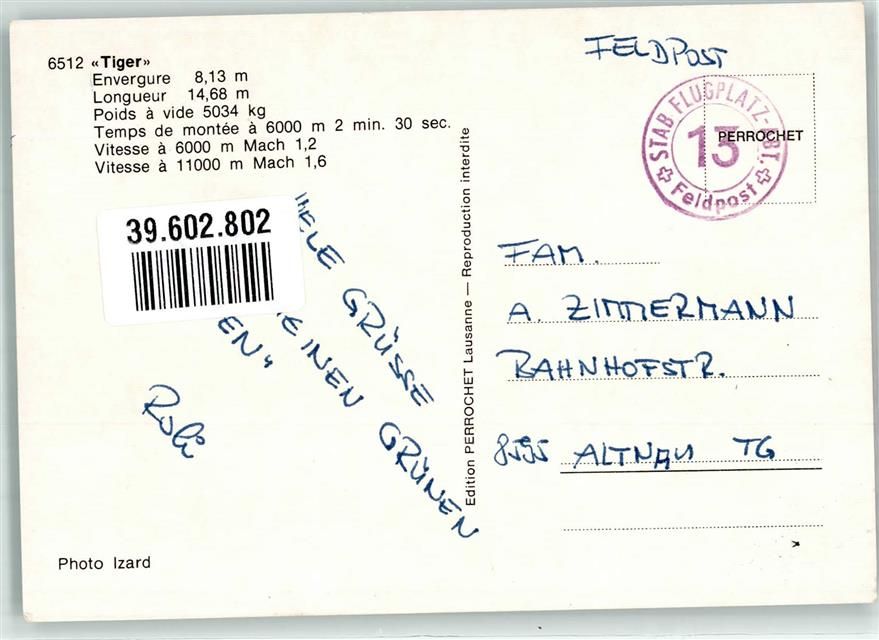 6512 «Tiger»
Envergure 8,13 m
Longueur 14,68 m
Poids à vide 5034 kg
Temps de montée à 6000 m 2 min. 30 sec.
Vitesse à 6000 m Mach 1,2
Vitesse à 11000 m Mach 1,6
39.602.802
GRÜSSE
EINEN GRÜNEN
EN"
Ruli
Photo Izard
Edition PERROCHET Lausanne — Reproduction interdite
FELDPOST
STAB FLUGPLATZ-ABT.
13
Feldpost
PERROCHET
FAM.
A. ZIMMERMANN
BAHNHOFSTR.
8595 ALTNAU TG